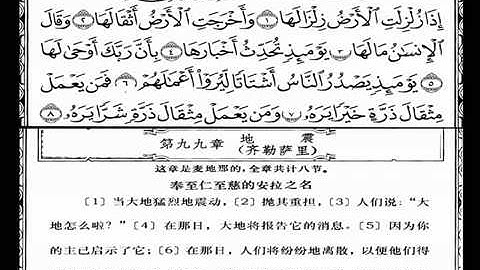 إِذَا زُلْزِلَتِ ٱلْأَرْضُ زِلْزَالَهَا ١ وَأَخْرَجَتِ ٱلْأَرْضُ أَثْقَالَهَا ٢ وَقَالَ
ٱلْإِنسَٰنُ مَا لَهَا ٣ يَوْمَئِذٍ تُحَدِّثُ أَخْبَارَهَا ٤ بِأَنَّ رَبَّكَ أَوْحَىٰ لَهَا
٥ يَوْمَئِذٍ يَصْدُرُ ٱلنَّاسُ أَشْتَاتًا لِّيُرَوْا۟ أَعْمَٰلَهُمْ ٦ فَمَن يَعْمَلْ
مِثْقَالَ ذَرَّةٍ خَيْرًا يَرَهُۥ ٧ وَمَن يَعْمَلْ مِثْقَالَ ذَرَّةٍ شَرًّا يَرَهُۥ ٨
第九九章 地震
(齐勒萨里)
这章是麦地那的,全章共计八节。
奉至仁至慈的安拉之名
[1] 当大地猛烈地震动,[2] 抛其重担,[3] 人们说:“大
地怎么啦?”[4] 在那日,大地将报告它的消息。[5] 因为你
的主已启示了它;[6] 在那日,人们将纷纷地离散,以便他们得